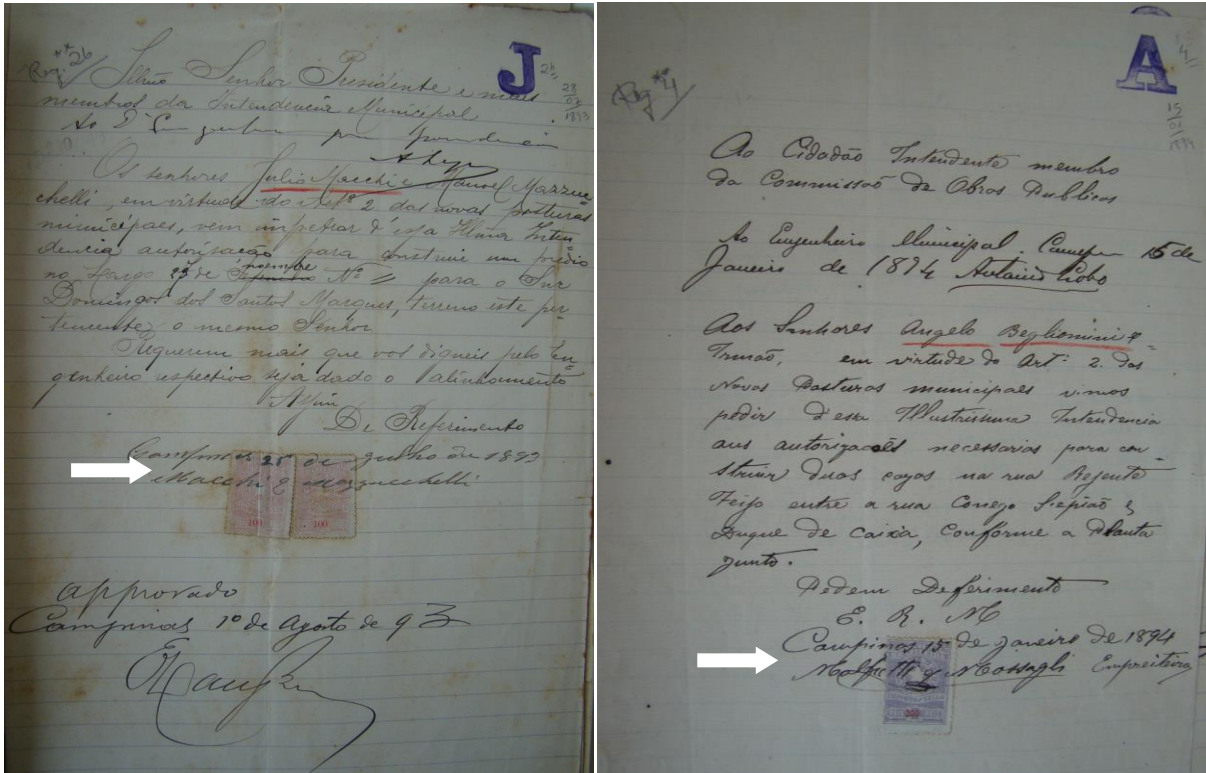 Reg. ** 26
J
28
28
07
1893
Illmo Senhor Presidente e mais
membros da Intendencia Municipal
Ao Sr Engenheiro
Os senhores Julio Macchi e Manoel Mazzuc
chelli, em virtude do Artº 2 das novas posturas
municipaes, vem impetrar d'essa Illma Inten-
dencia autorisação para construir um predio
no Largo de novembro Nº para o Snr
Domingos dos Santos Marques, terreno este per-
tencente o mesmo Senhor
Requerem mais que vos digneis pelo En-
genheiro respectivo seja dado o alinhamento
De Referimento
Campinas de Julho de 1893
Macchi & Mazzucchelli
100 100
approvado
Campinas 1º de Agosto de 93
Reg ** 4
A
4
15
01
1894
Ao Cidadão Intendente membro
da Commissaõ de Obras Publicas
Ao Engenheiro Municipal. Campas 15 de
Janeiro de 1894 Antonio Lobo
Aos Senhores Angelo Beglionini &
Irmaõ, em virtude do Art: 2. das
Novas Posturas municipaes vimos
pedir d'essa Illustrissima Intendencia
aus autorizacoẽs necessarias para con-
struir duas cazas na rua Rejente
Feijo entre a rua Conego Sipiaõ &
Duque de Caixa, Conforme a Planta
junto.
Pedem Deferimento
E. R. M
Campinas 15 de Janeiro de 1894
& Mossagli Empreiteiros